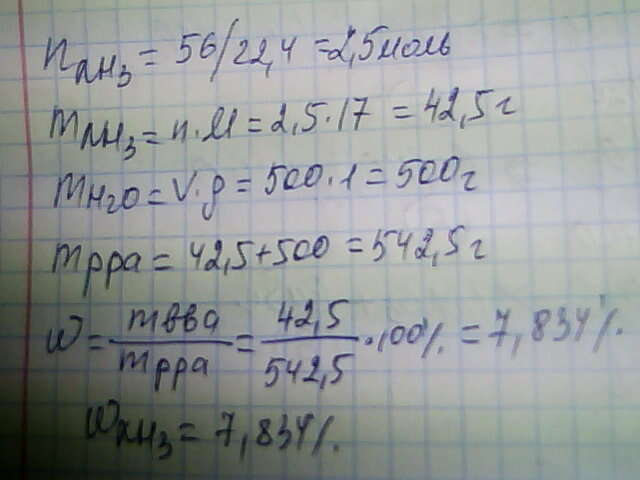 nNH3 = 56/22,4 = 2,5 моль
mNH3 = n·M = 2,5·17 = 42,5 г
mH2O = V·ρ = 500·1 = 500 г
mрра = 42,5+500 = 542,5 г
W = mвва/mрра = 42,5/542,5 · 100% = 7,834%.
WNH3 = 7,834%.